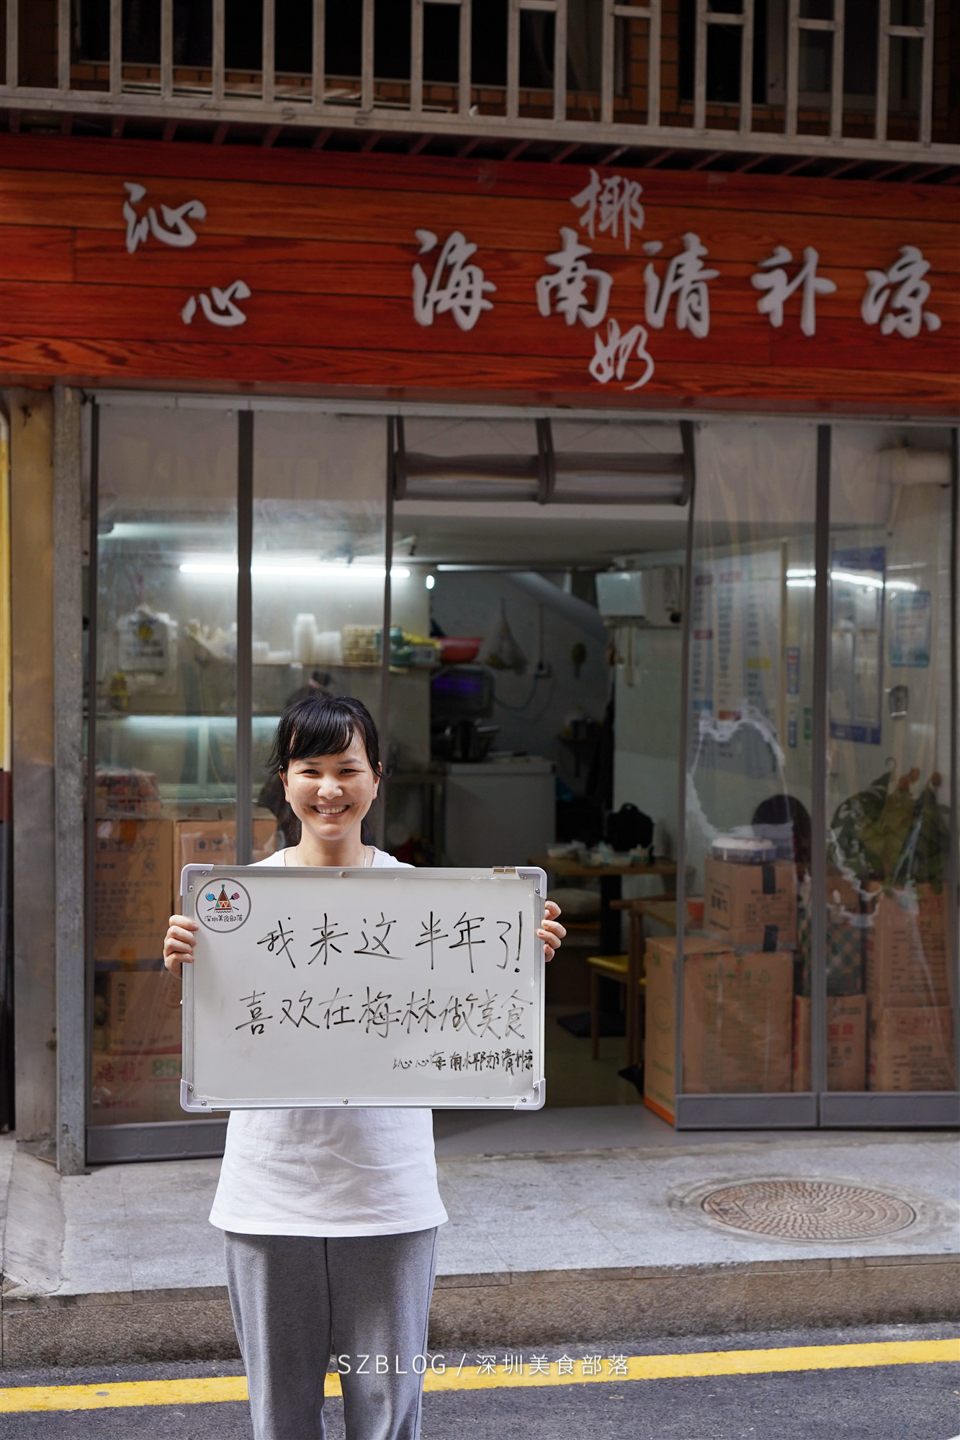 沁心
椰
海南清补凉
奶
深圳美食部落
我来这半年了!
喜欢在梅林做美食
沁心海南水耶奶清补凉
SZBLOG / 深圳美食部落